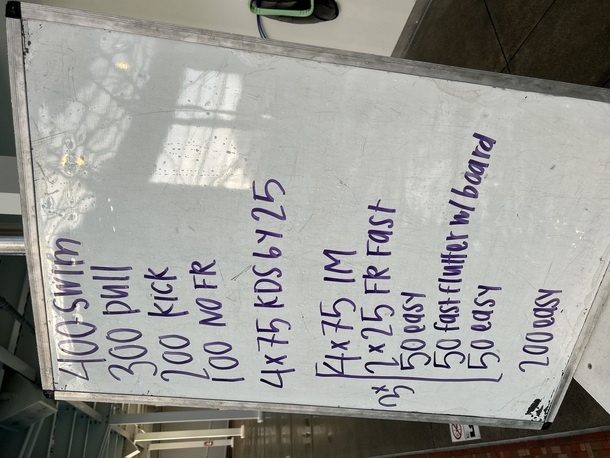 400 SWIM
300 pull
200 KICK
100 NO FR
4x75 KDS by 25
4x75 IM
3x 2x25 FR FAST
50 easy
50 fast flutter w/ board
50 easy
200 easy